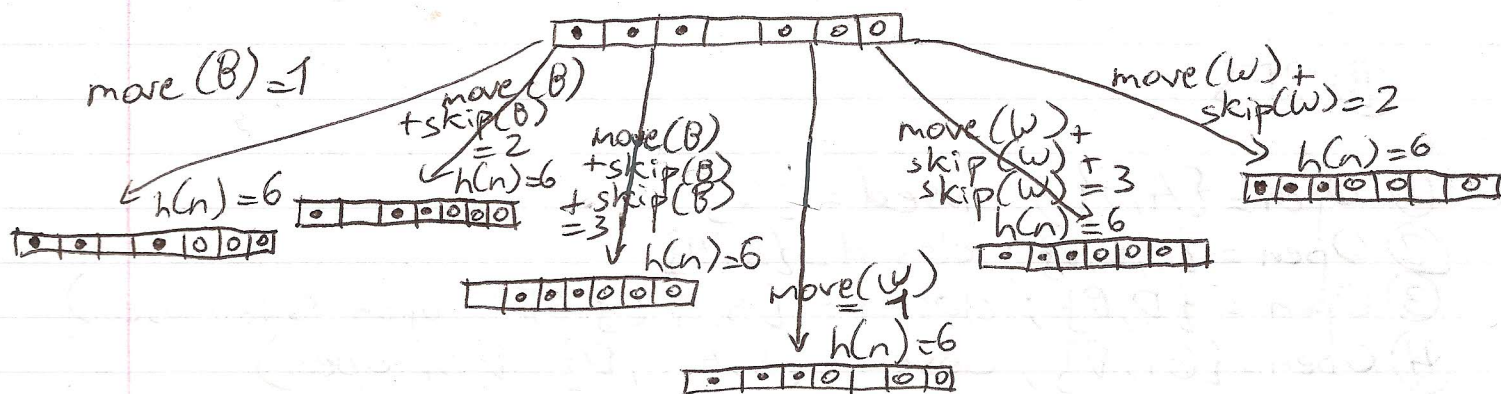 move (B) = 1
move (B)
+ skip (B)
= 2
h(n) = 6
h(n) = 6
move (B)
+ skip (B)
+ skip (B)
= 3
h(n) = 6
move (W)
= 1
h(n) = 6
move (W) +
skip (W) +
skip (W) = 3
h(n) = 6
move (W) +
skip (W) = 2
h(n) = 6